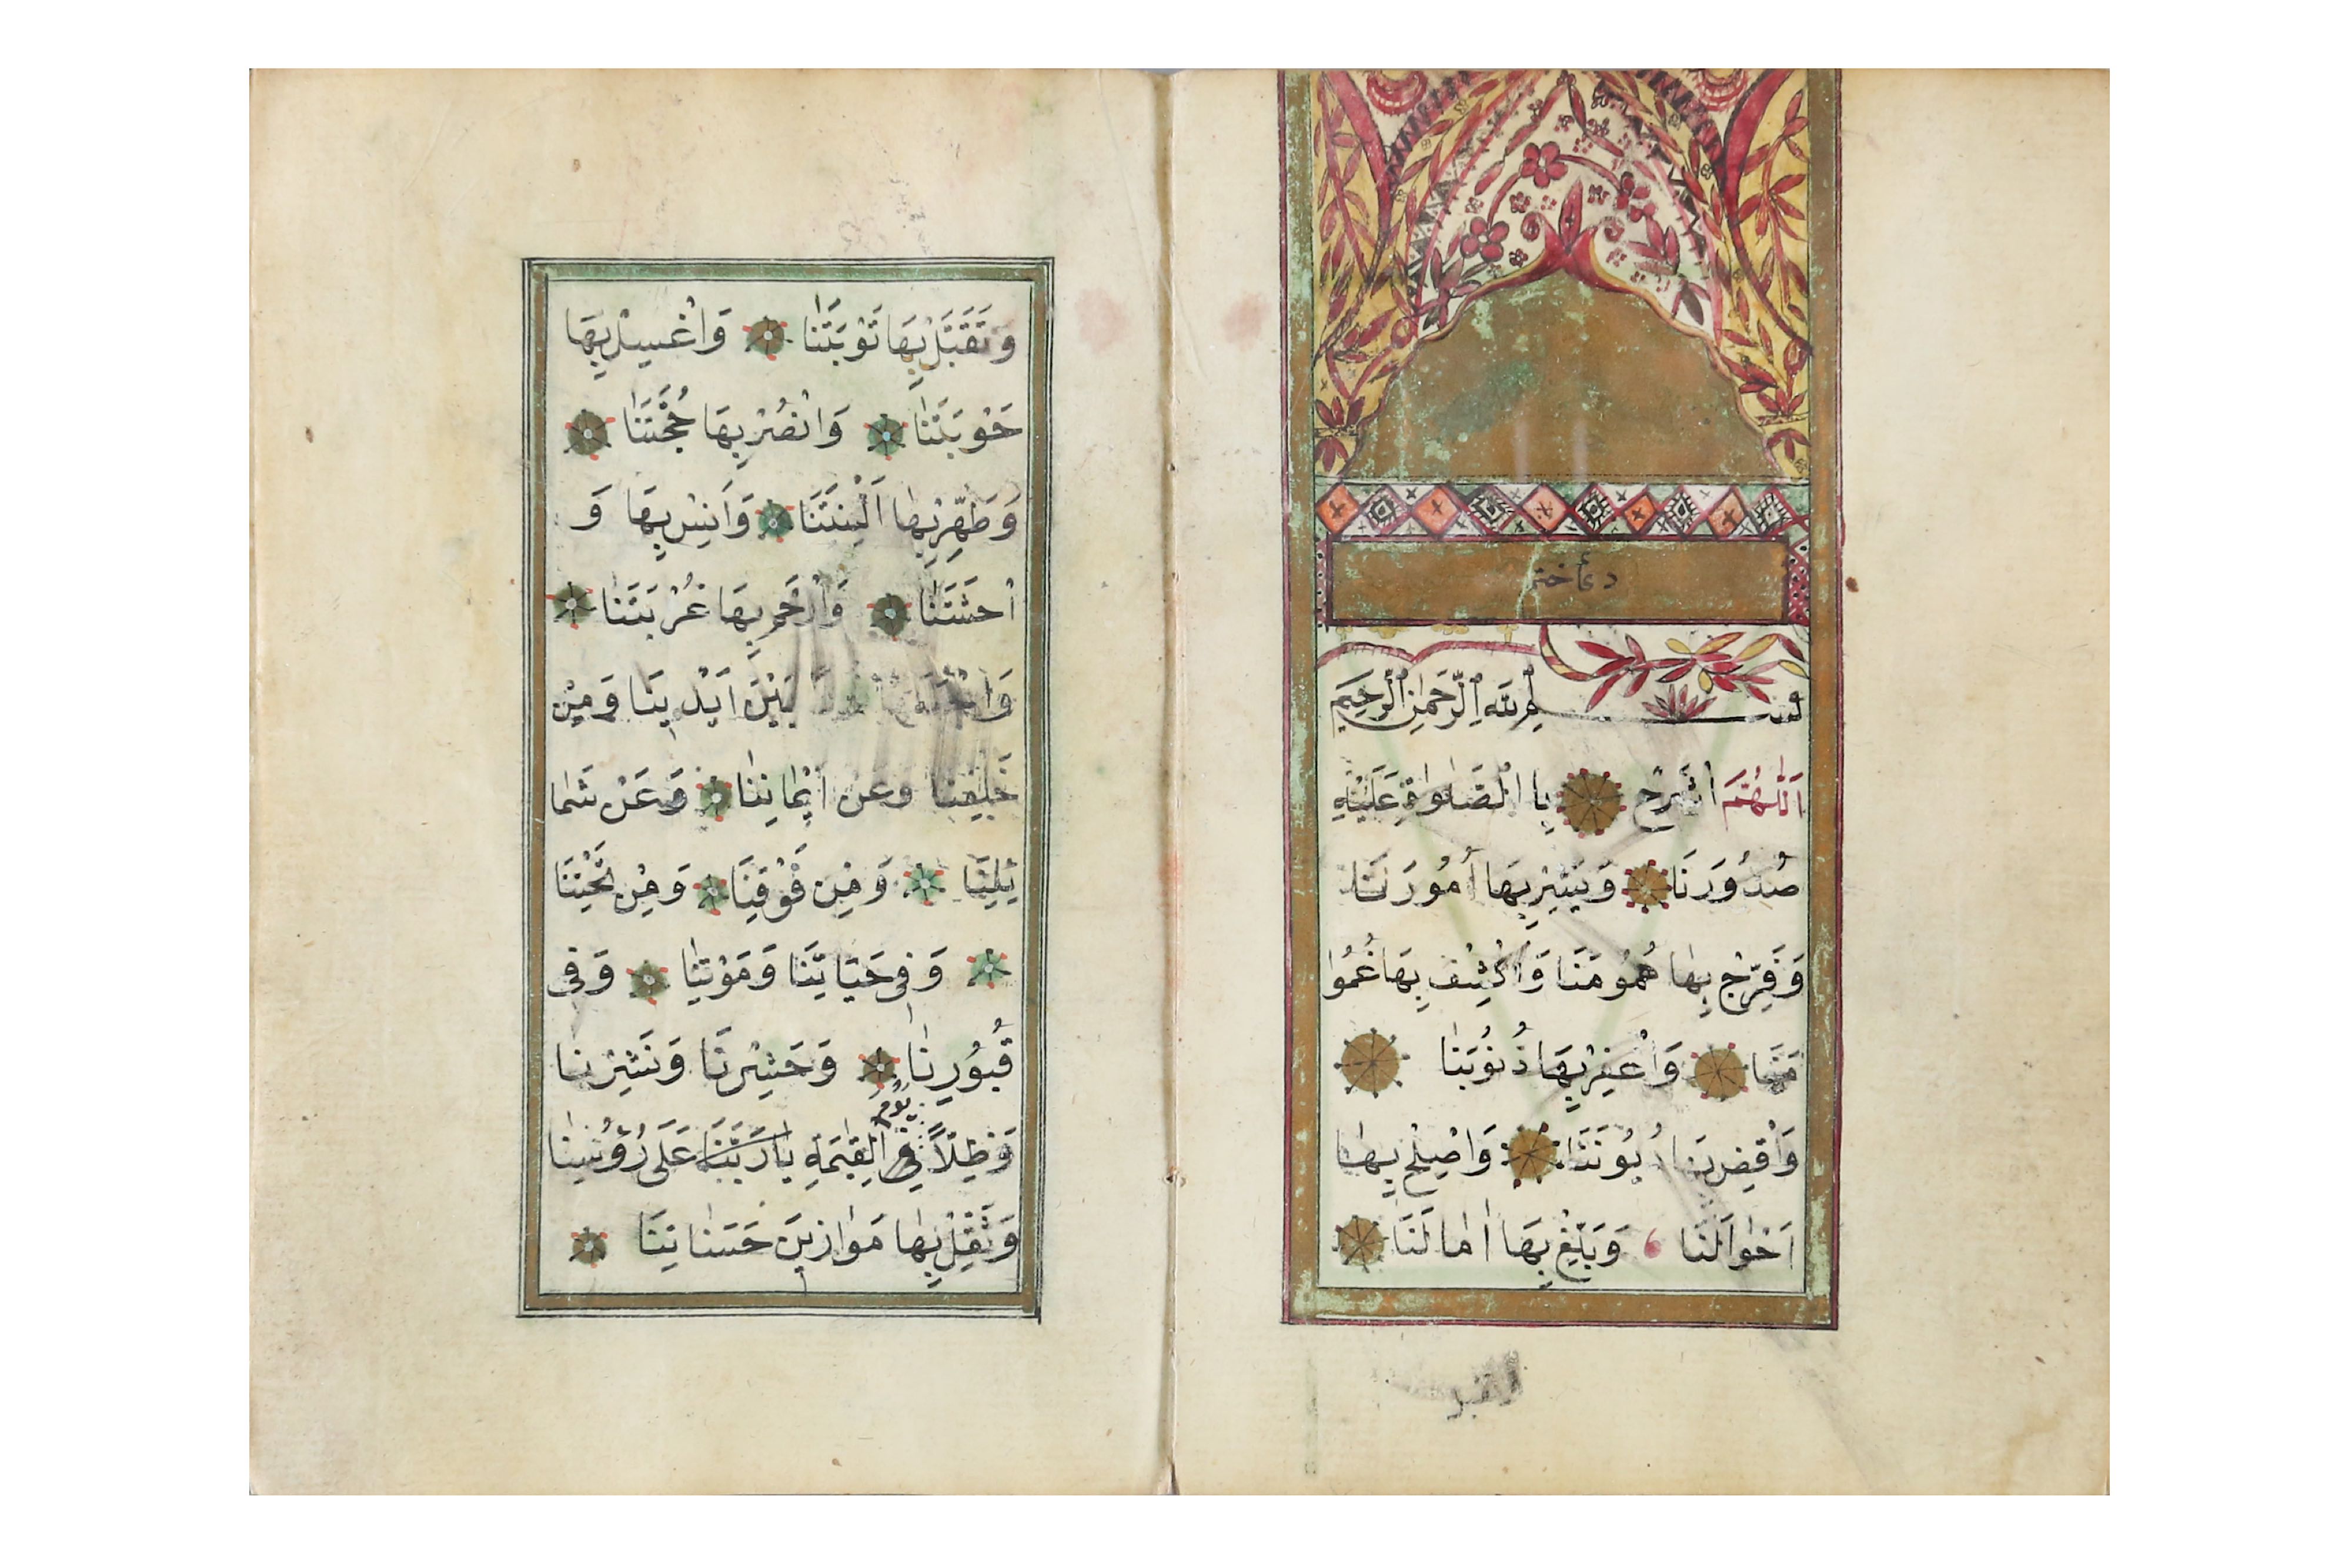 دعأ ختم
بسم الله الرحمن الرحيم
اَللّٰهُمَّ اشْرَحْ بِالصَّلٰوةِ عَلَيْهِ
صُدُورَنَا وَيَسِّرْ بِهَا اُمُورَنَا
وَفَرِّجْ بِهٰا هُمُومَنَا وَاكْشِفْ بِهَا غُمُوا
مَنَا وَاغْفِرْ بِهَا ذُنُوبَنٰا
وَاقْضِ بِهَا دُيُونَنَا وَاصْلِحْ بِهٰا
اَحْوٰالَنَا وَبَلِّغْ بِهَا اٰمٰالَنَا
وَتَقَبَّلْ بِهَا تَوْبَتَنٰا وَاغْسِلْ بِهَا
حَوْبَتَنٰا وَانْصُرْ بِهَا حُجَّتَنٰا
وَطَهِّرْ بِهٰا اَلْسِنَتَنَا وَاٰنِسْ بِهَا وَ
احْشَتَنٰا وَارْحَمْ بِهَا غُرْبَتَنٰا
بَيْنَ اَيْدِينَا وَمِنْ
خَلْفِنٰا وَعَنْ اَيْمٰانِنٰا وَعَنْ شَمٰا
ئِلِنَا وَمِنْ فَوْقِنَا وَمِنْ تَحْتِنَا
وَفِى حَيَاتِنَا وَمَوْتِنٰا وَفِى
قُبُورِنٰا وَحَشْرِنَا وَنَشْرِنٰا
وَظِلّاً فِى يَوْمِ الْقِيٰمَةِ يٰارَبَّنَا عَلَى رُؤُسِنٰا
وَثَقِّلْ بِهٰا مَوٰازِينَ حَسَنٰاتِنَا